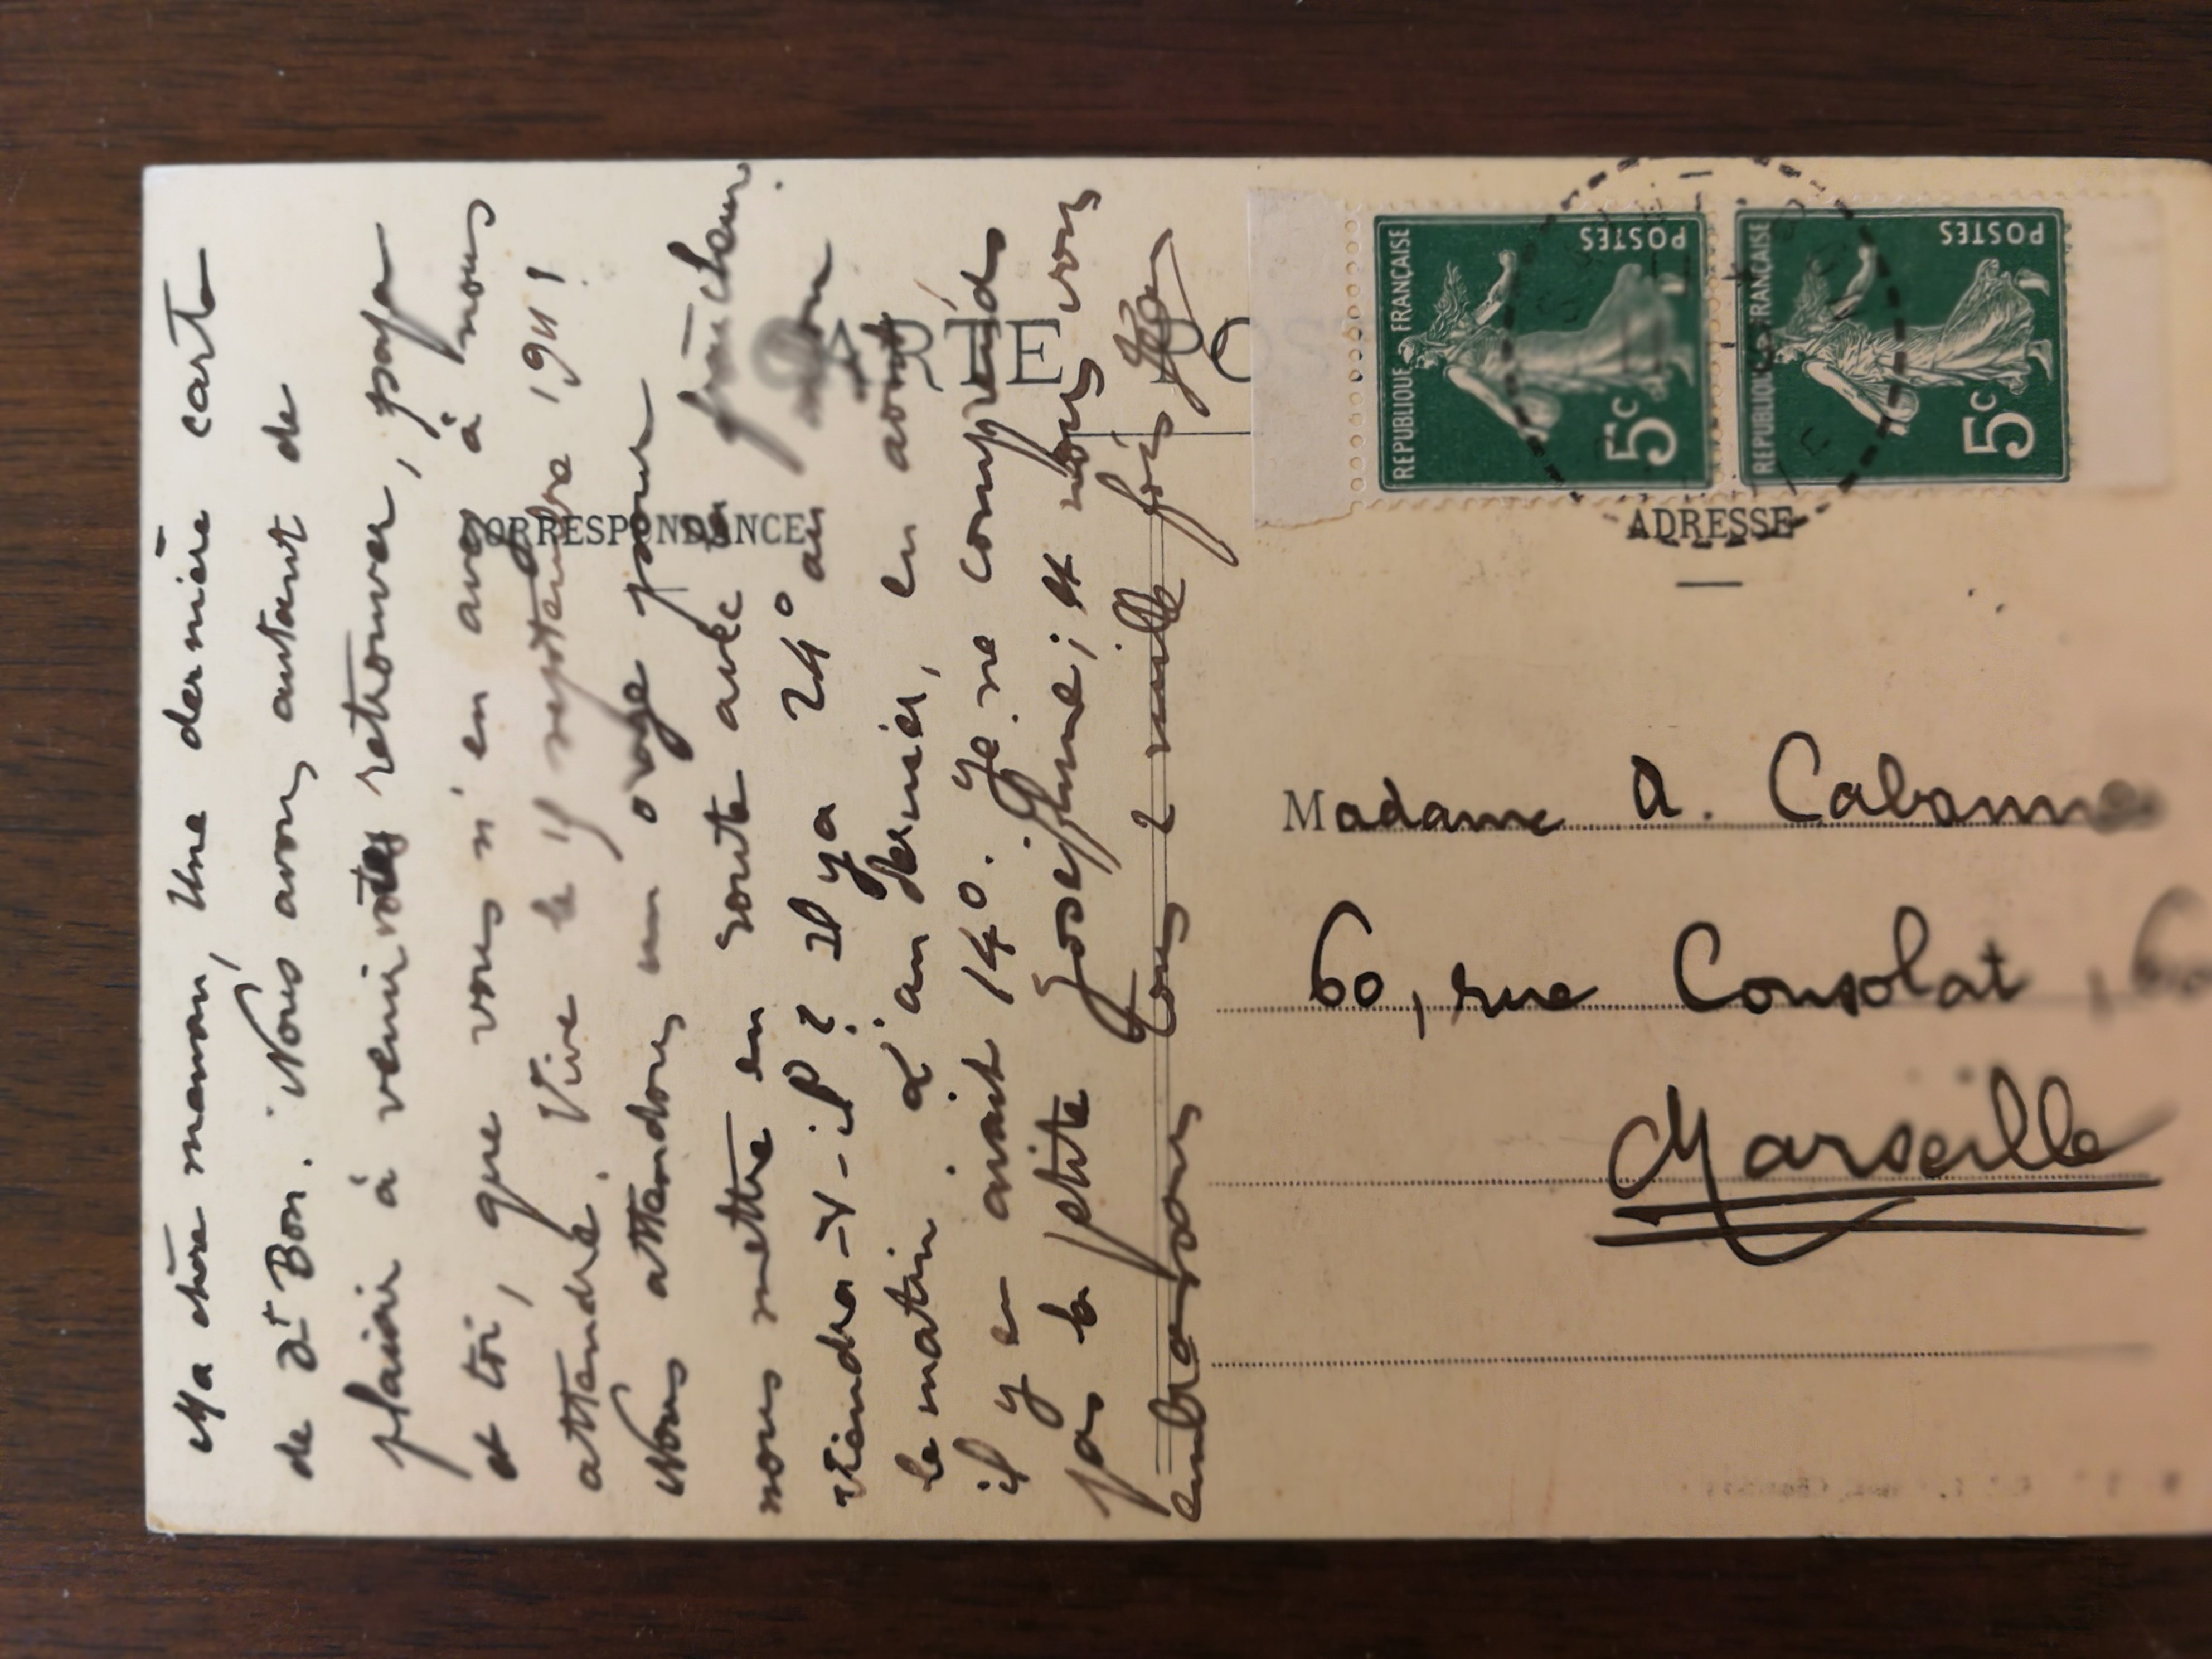 Ma chère maman, Une dernière carte
de St Bon. Nous avons autant de
plaisir à venir vous retrouver, papa
et toi, que vous n'en avez à nous
attendre. Vive le 15 septembre 1911!
Nous attendons un orage pour
nous mettre en route avec la fraîcheur.
Viendra-t-il? Il y a 24° au
le matin. L'an dernier, en août
il y en avait 14°. Je ne comprends
pas la petite Josephine; et nous vous
embrassons tous 2 mille fois
CARTE POS
CORRESPONDANCE
ADRESSE
REPUBLIQUE FRANÇAISE
POSTES
5c
REPUBLIQUE FRANÇAISE
POSTES
5c
Madame A. Cabannes
60, rue Consolat, 60
Marseille